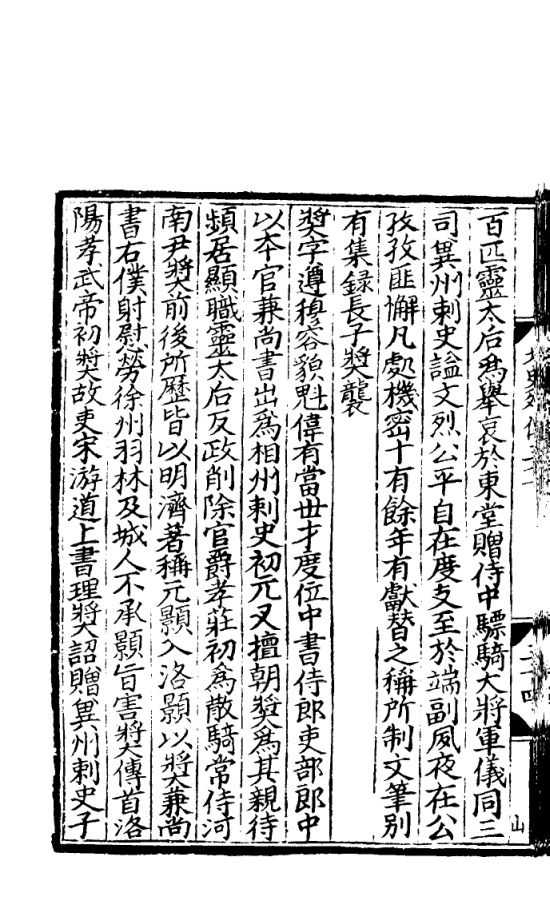 百匹靈太后為舉哀於東堂贈侍中驃騎大將軍儀同三
司兾州刺史諡文烈公平自在度支至於端副夙夜在公
孜孜匪懈凡處機密十有餘年有獻替之稱所制文筆別
有集録長子奬襲
奬字遵穆容貌魁偉有當世才度位中書侍郎吏部郎中
以本官兼尚書出為相州刺史初元叉擅朝奬為其親待
頻居顯職靈太后反政削除官爵孝莊初為散騎常侍河
南尹奬前後所歷皆以明濟著稱元顥入洛顥以奬兼尚
書右僕射慰勞徐州羽林及城人不承顥旨害奬傳首洛
陽孝武帝初奬故吏宋游道上書理奬詔贈兾州刺史子